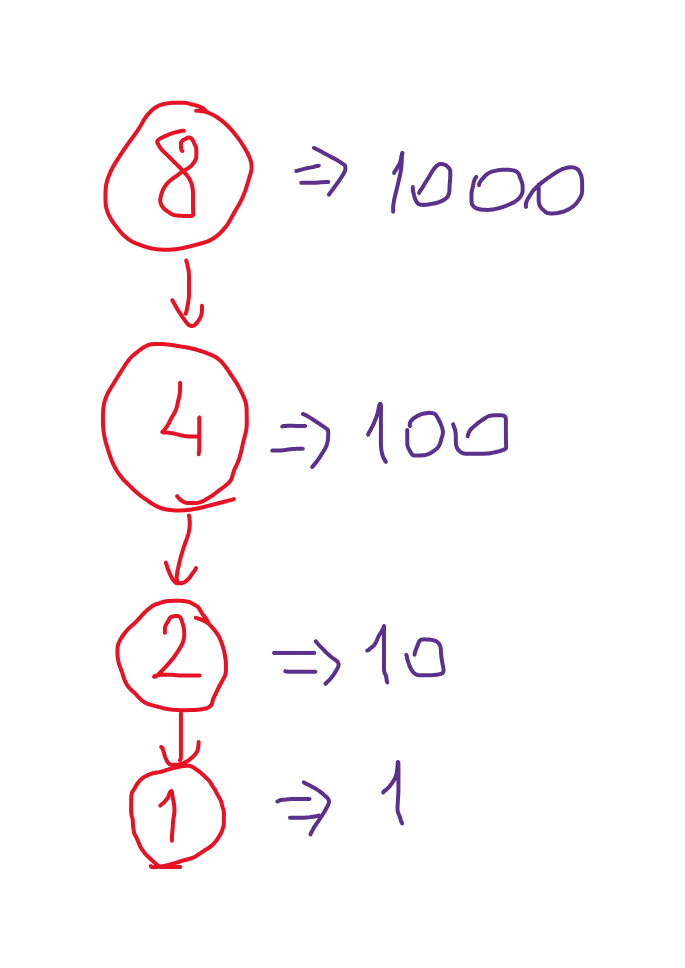 8 => 1000
4 => 100
2 => 10
1 => 1